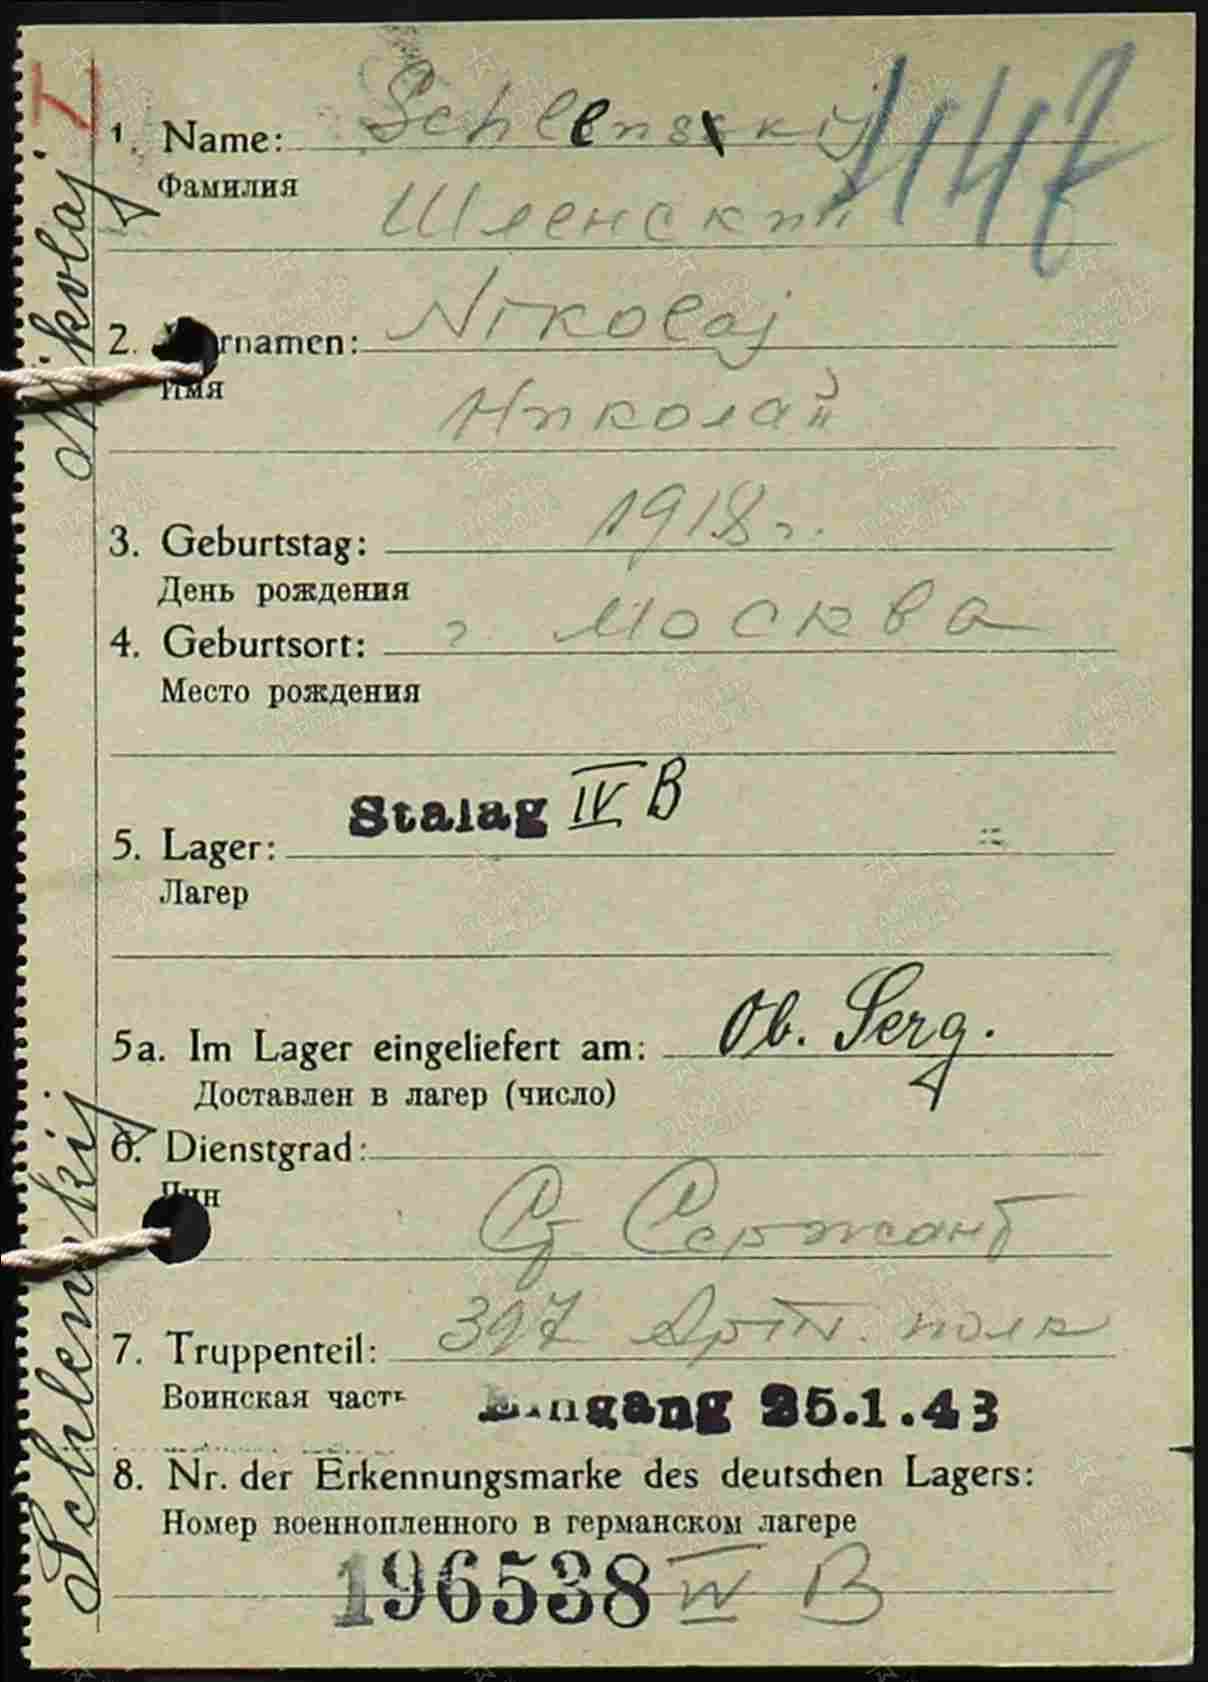 I
1147
1. Name: Schlenskij
Фамилия
Шленский
2. Vornamen: Nikolaj
Имя
Николай
3. Geburtstag: 1918 г.
День рождения
4. Geburtsort: г. Москва
Место рождения
Stalag IV B
5. Lager:
Лагер
5a. Im Lager eingeliefert am: Ob. Serg.
Доставлен в лагер (число)
6. Dienstgrad:
Чин
Ст Сержант
7. Truppenteil: 397 Арт. полк
Воинская часть
Eingang 25.1.43
8. Nr. der Erkennungsmarke des deutschen Lagers:
Номер военнопленного в германском лагере
196538 IV B
Schlenskij Nikolaj